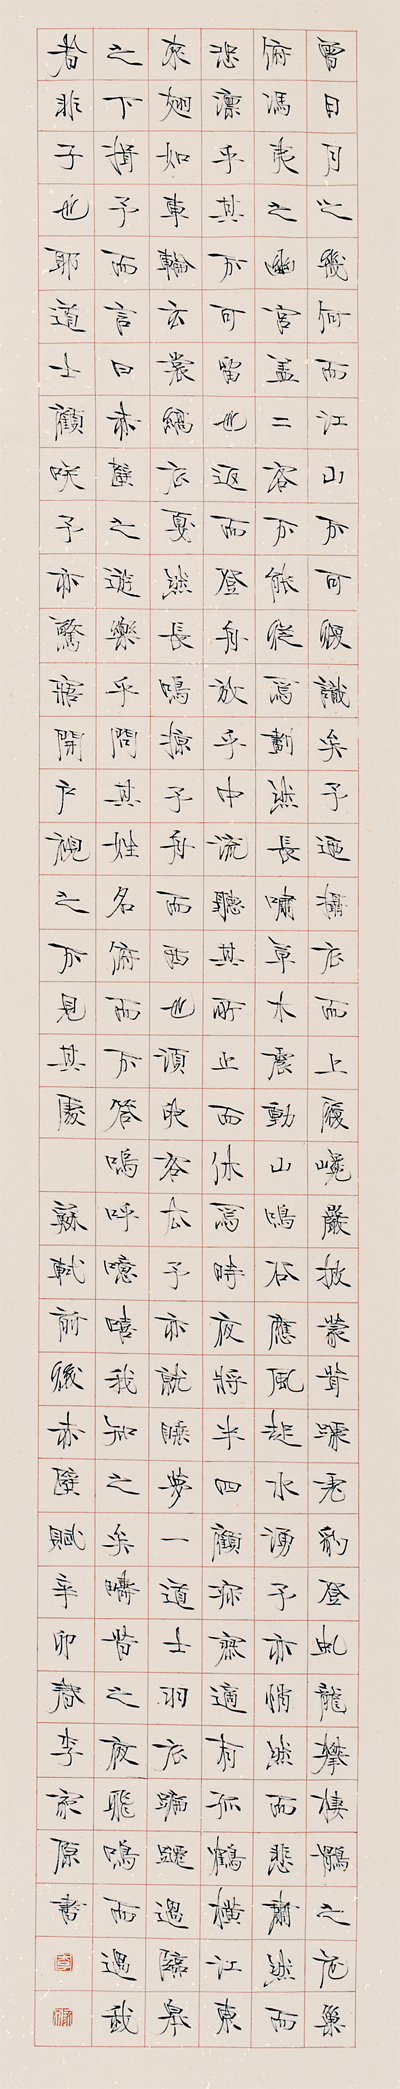 曾日月之幾何而江山不可復識矣予迺攝衣而上履巉巖披蒙茸踞虎豹登虬龍攀棲鶻之危巢
俯馮夷之幽宮蓋二客不能從焉劃然長嘯草木震動山鳴谷應風起水湧予亦悄然而悲肅然而
恐凜乎其不可留也返而登舟放乎中流聽其所止而休焉時夜將半四顧寂寥適有孤鶴橫江東
來翅如車輪玄裳縞衣戛然長鳴掠予舟而西也須臾客去予亦就睡夢一道士羽衣蹁躚過臨皋
之下揖予而言曰赤壁之遊樂乎問其姓名俯而不答嗚呼噫嘻我知之矣疇昔之夜飛鳴而過我
者非子也耶道士顧咲予亦驚寤開戶視之不見其處 蘇軾前後赤壁賦辛卯春李家原書